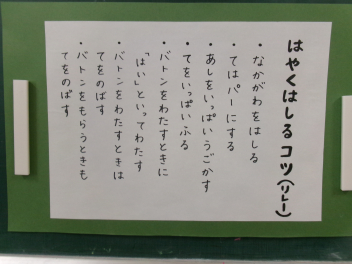 はやくはしるコツ(リレー)
・なかがわをはしる
・てはパーにする
・あしをいっぱいうごかす
・てをいっぱいふる
・バトンをわたすときに
「はい」といってわたす
・バトンをわたすときは
てをのばす
・バトンをもらうときも
てをのばす